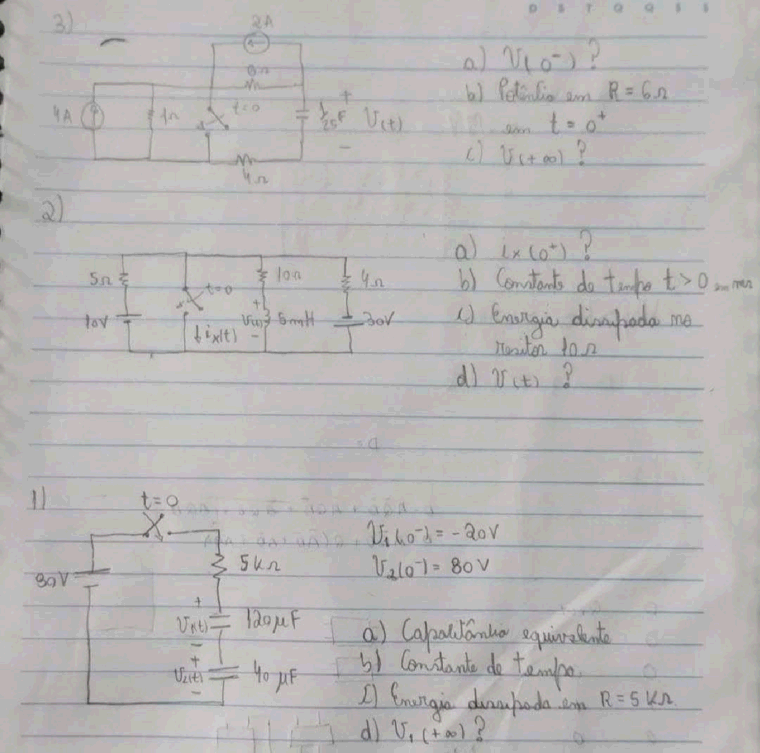 D S T Q Q S S
3)
2A
8Ω
4A
1Ω
t=0
1/25F
V(t)
+
-
4Ω
a) V(0⁻) ?
b) Potência em R = 6Ω
em t = 0⁺
c) V(+∞) ?
2)
5Ω
10V
t=0
ix(t)
10Ω
+
V(t)
-
5mH
4Ω
30V
a) ix(0⁺) ?
b) Constante de tempo t > 0 em ms
c) Energia dissipada no
resistor 10Ω
d) V(t) ?
1)
t=0
80V
5kΩ
+
V1(t)
-
120μF
+
V2(t)
-
40μF
V1(0⁻) = -20V
V2(0⁻) = 80V
a) Capacitância equivalente
b) Constante de tempo
c) Energia dissipada em R = 5KΩ
d) V1(+∞) ?